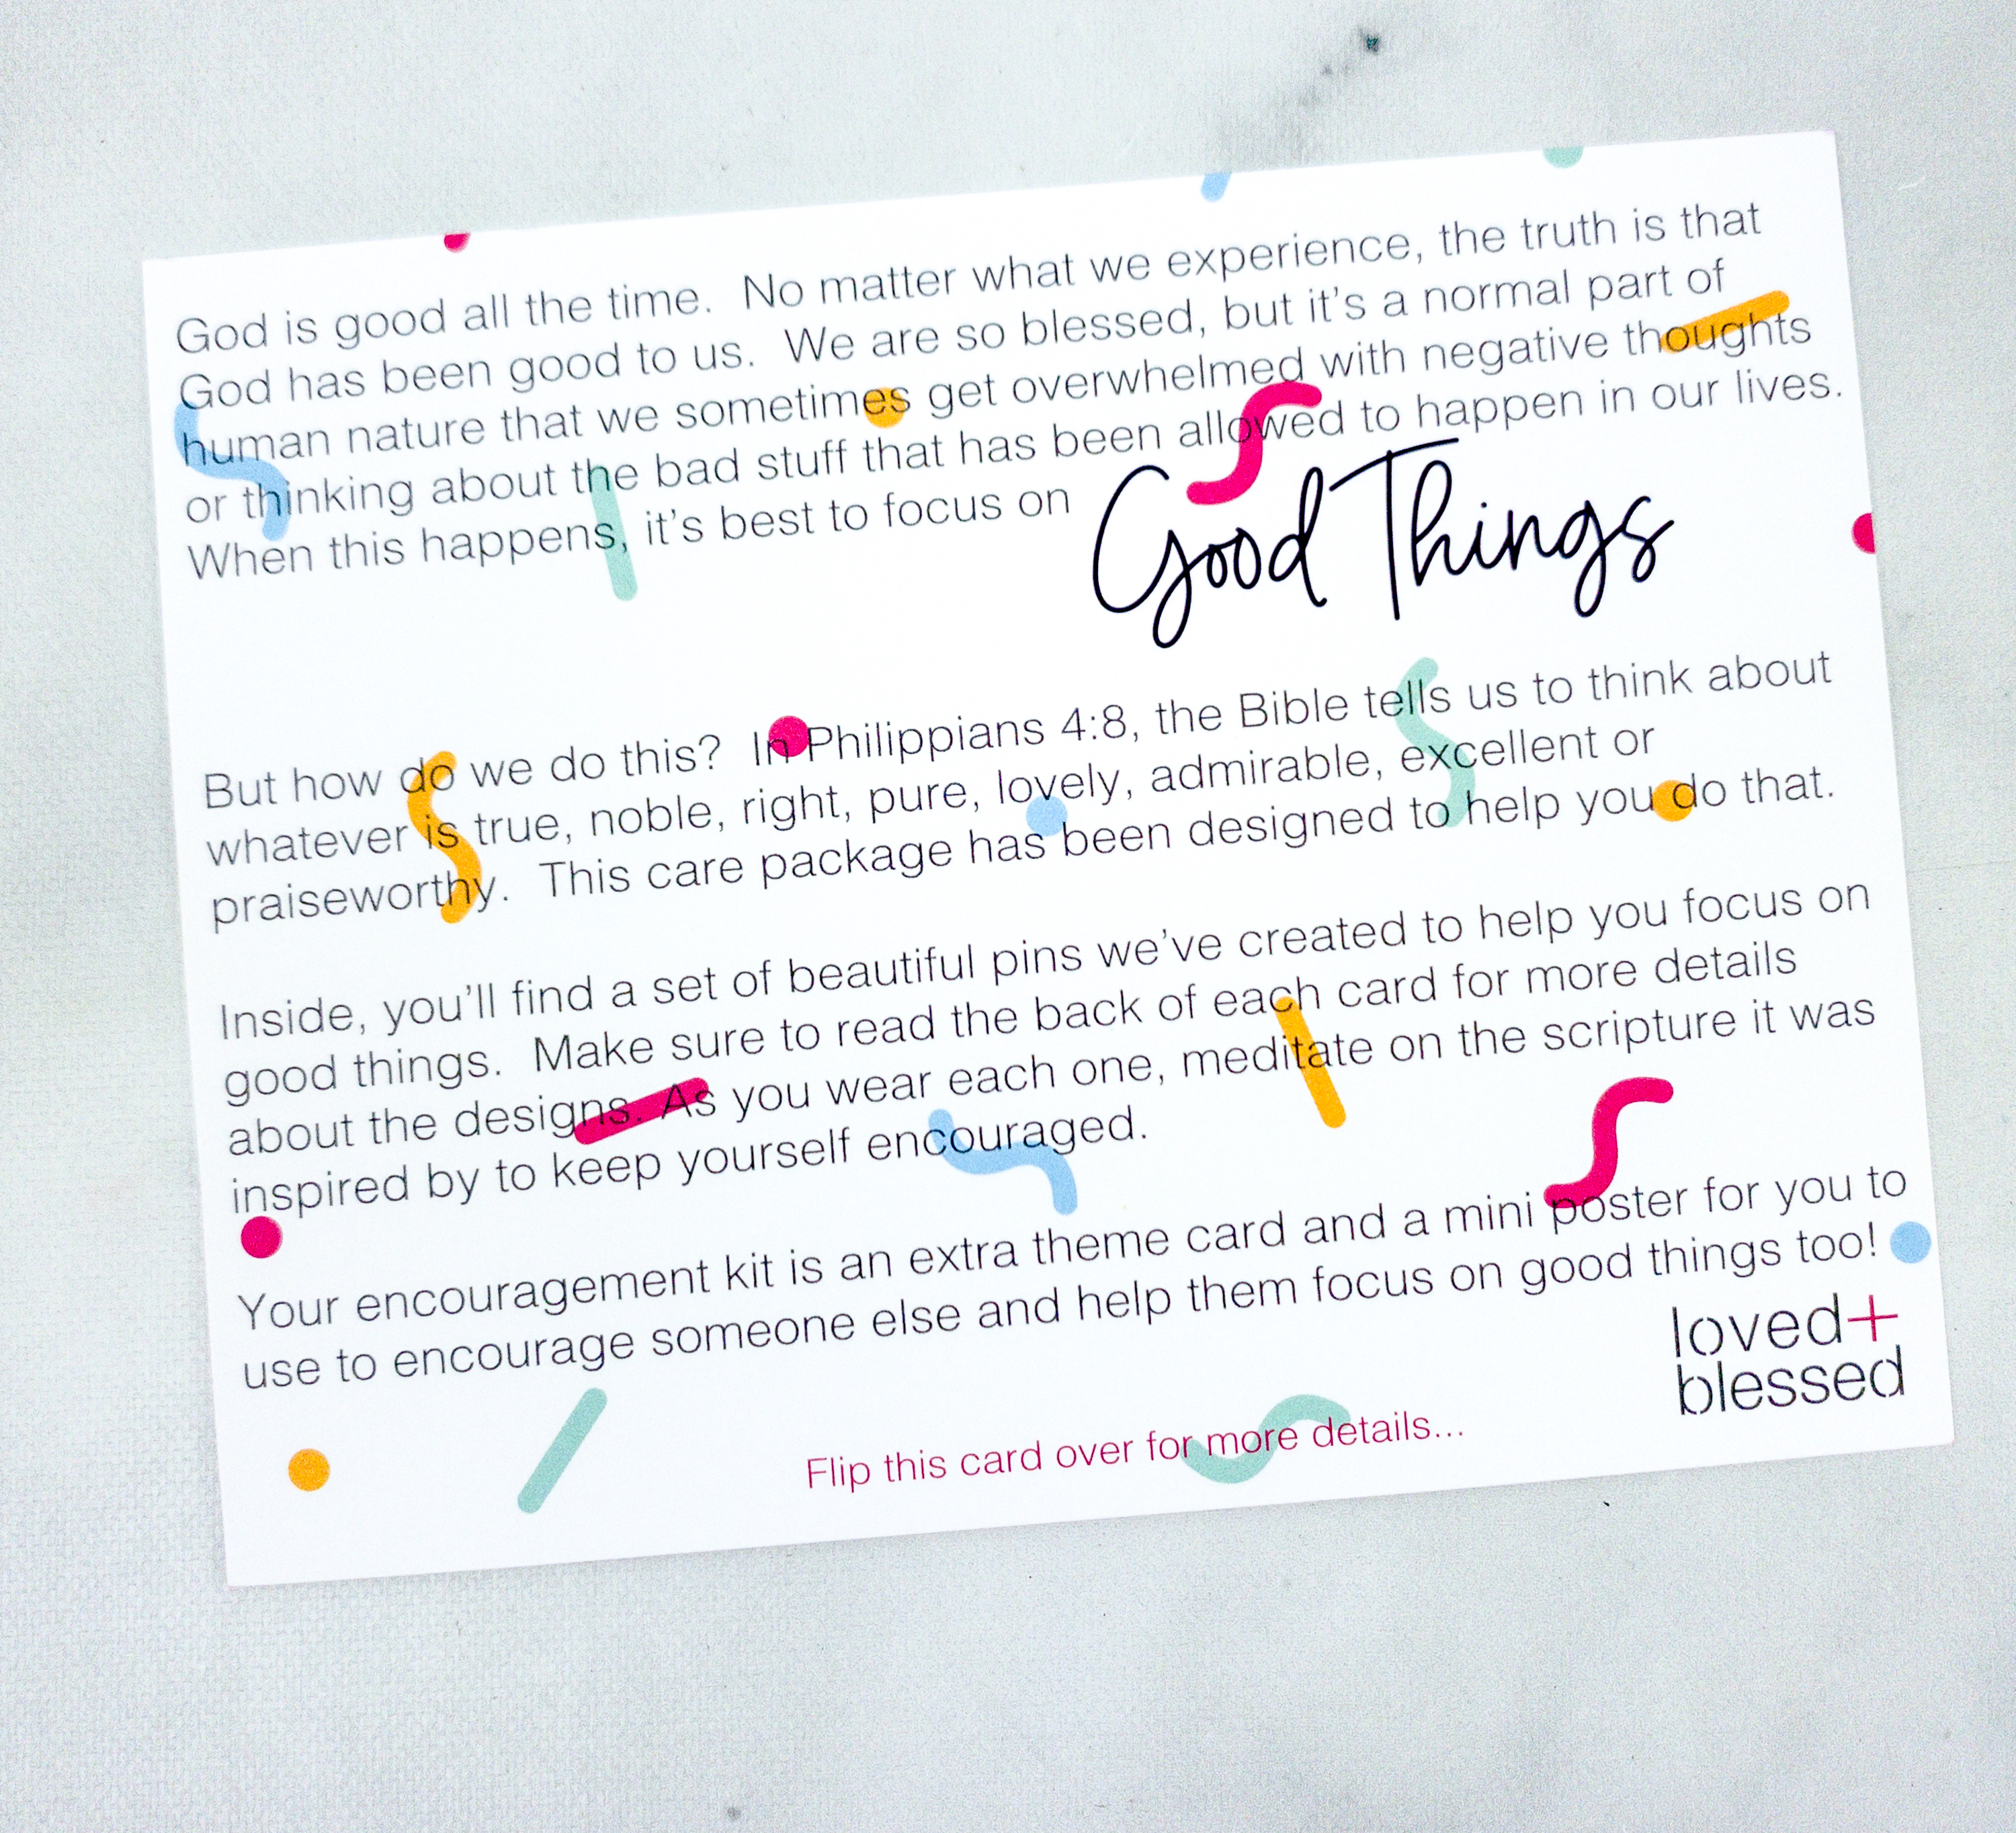 God is good all the time.  No matter what we experience, the truth is that
God has been good to us.  We are so blessed, but it's a normal part of
human nature that we sometimes get overwhelmed with negative thoughts
or thinking about the bad stuff that has been allowed to happen in our lives.
When this happens, it's best to focus on Good Things
But how do we do this?  In Philippians 4:8, the Bible tells us to think about
whatever is true, noble, right, pure, lovely, admirable, excellent or
praiseworthy.  This care package has been designed to help you do that.
Inside, you'll find a set of beautiful pins we've created to help you focus on
good things.  Make sure to read the back of each card for more details
about the designs. As you wear each one, meditate on the scripture it was
inspired by to keep yourself encouraged.
Your encouragement kit is an extra theme card and a mini poster for you to
use to encourage someone else and help them focus on good things too!
loved+
blessed
Flip this card over for more details...